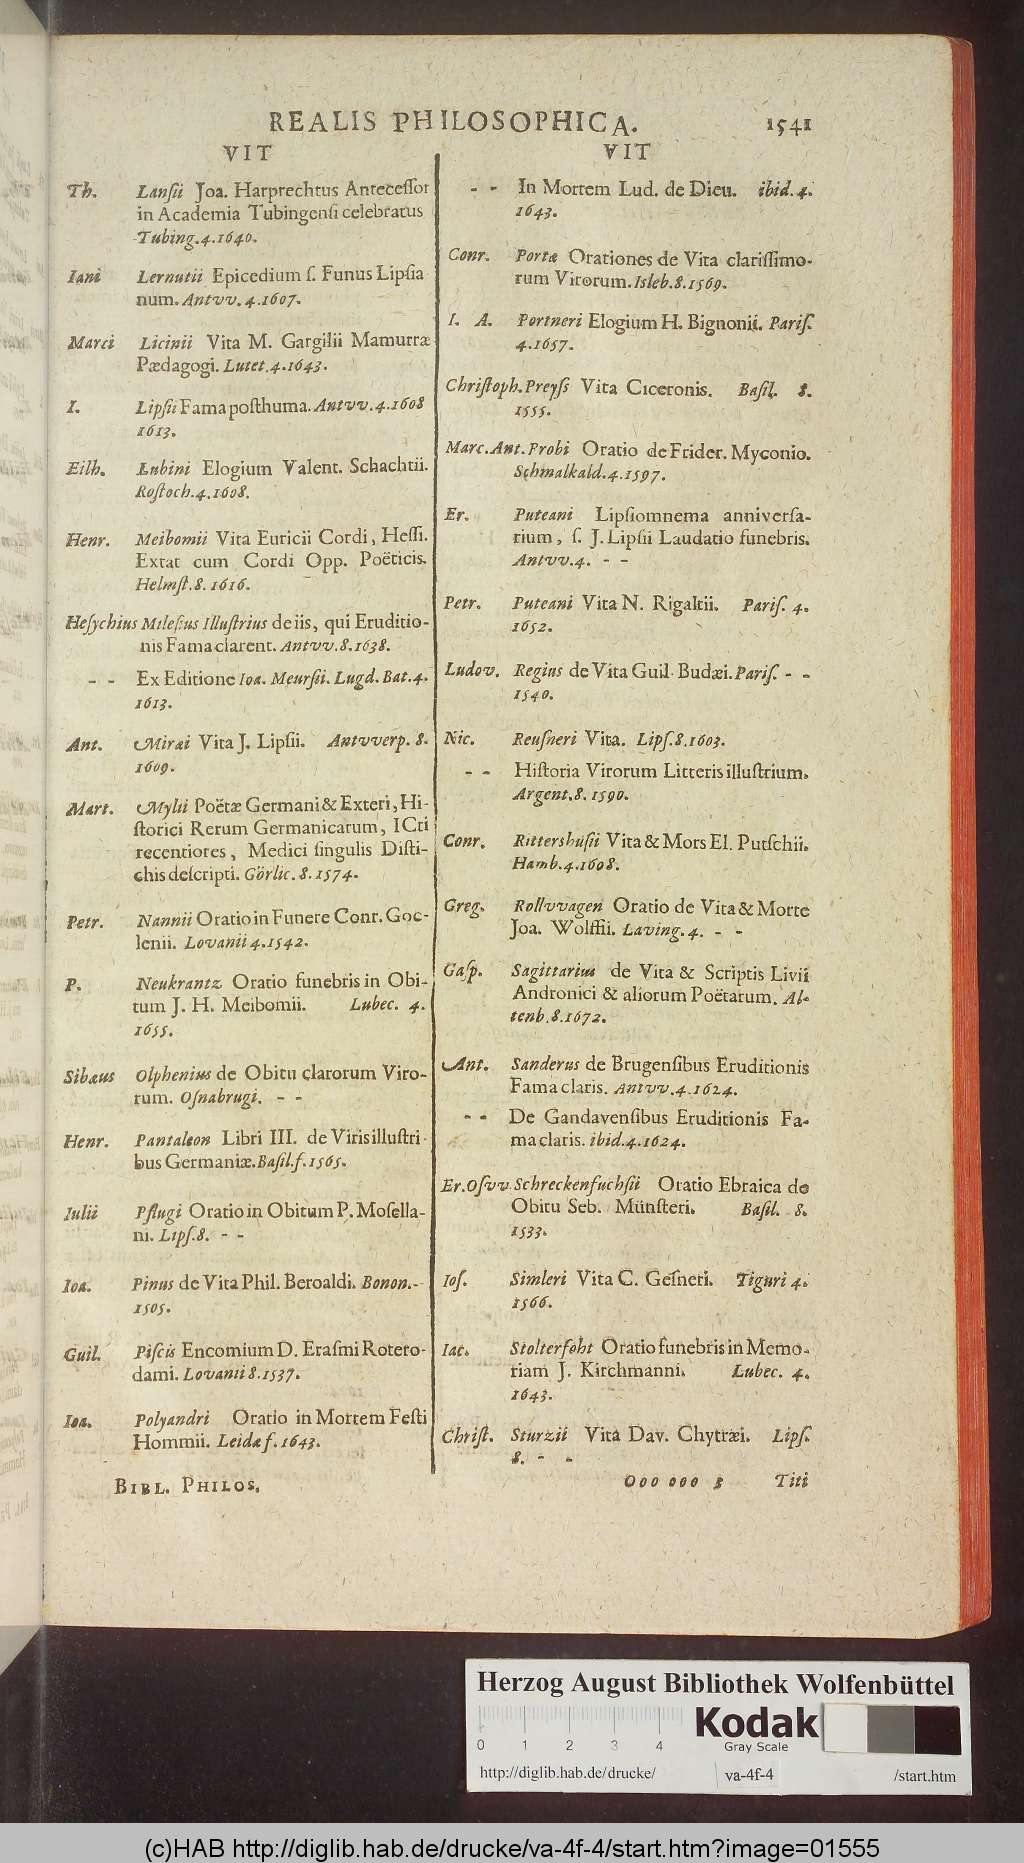 REALIS PHILOSOPHICA. 1541
VIT
Th. Lansii Joa. Harprechtus Antecessor
in Academia Tubingensi celebratus
Tubing. 4. 1640.
Iani Lernutii Epicedium s. Funus Lipsia
num. Antvv. 4. 1607.
Marci Licinii Vita M. Gargilii Mamurræ
Pædagogi. Lutet. 4. 1643.
I. Lipsii Fama posthuma. Antvv. 4. 1608
1613.
Eilh. Lubini Elogium Valent. Schachtii.
Rostoch. 4. 1608.
Henr. Meibomii Vita Euricii Cordi, Hessi.
Extat cum Cordi Opp. Poëticis.
Helmst. 8. 1616.
Hesychius Milesius Illustrius de iis, qui Eruditio-
nis Fama clarent. Antvv. 8. 1638.
- - Ex Editione Ioa. Meursii. Lugd. Bat. 4.
1613.
Ant. Miræi Vita J. Lipsii. Antvverp. 8.
1609.
Mart. Mylii Poëtæ Germani & Exteri, Hi-
storici Rerum Germanicarum, ICti
recentiores, Medici singulis Disti-
chis descripti. Görlic. 8. 1574.
Petr. Nannii Oratio in Funere Conr. Goc-
lenii. Lovanii 4. 1542.
P. Neukrantz Oratio funebris in Obi-
tum J. H. Meibomii. Lubec. 4.
1655.
Sibæus Olphenius de Obitu clarorum Viro-
rum. Osnabrugi. - -
Henr. Pantaleon Libri III. de Viris illustri-
bus Germaniæ. Basil. f. 1565.
Iulii Pflugi Oratio in Obitum P. Mosella-
ni. Lips. 8. - -
Ioa. Pinus de Vita Phil. Beroaldi. Bonon. -
1505.
Guil. Piscis Encomium D. Erasmi Rotero-
dami. Lovanii 8. 1537.
Ioa. Polyandri Oratio in Mortem Festi
Hommii. Leidæ f. 1643.
BIBL. PHILOS.
VIT
- - In Mortem Lud. de Dieu. ibid. 4.
1643.
Conr. Portæ Orationes de Vita clarissimo-
rum Virorum. Isleb. 8. 1569.
I. A. Portneri Elogium H. Bignonii. Paris.
4. 1657.
Christoph. Preyss Vita Ciceronis. Basil. 8.
1555.
Marc. Ant. Probi Oratio de Frider. Myconio.
Schmalkald. 4. 1597.
Er. Puteani Lipsiomnema anniversa-
rium, s. J. Lipsii Laudatio funebris.
Antvv. 4. - -
Petr. Puteani Vita N. Rigaltii. Paris. 4.
1652.
Ludov. Regius de Vita Guil. Budæi. Paris. - -
1540.
Nic. Reusneri Vita. Lips. 8. 1603.
- - Historia Virorum Litteris illustrium.
Argent. 8. 1590.
Conr. Rittershusii Vita & Mors El. Putschii.
Hamb. 4. 1608.
Greg. Rollvvagen Oratio de Vita & Morte
Joa. Wolffii. Laving. 4. - -
Gasp. Sagittarius de Vita & Scriptis Livii
Andronici & aliorum Poëtarum. Al-
tenb. 8. 1672.
Ant. Sanderus de Brugensibus Eruditionis
Fama claris. Antvv. 4. 1624.
- - De Gandavensibus Eruditionis Fa-
ma claris. ibid. 4. 1624.
Er. Osvv. Schreckenfuchsii Oratio Ebraica de
Obitu Seb. Münsteri. Basil. 8.
1533.
Ios. Simleri Vita C. Gesneri. Tiguri 4.
1566.
Iac. Stolterfoht Oratio funebris in Memo-
riam J. Kirchmanni. Lubec. 4.
1643.
Christ. Sturzii Vita Dav. Chytræi. Lips.
8. - -
Ooo ooo 3 Titi
Herzog August Bibliothek Wolfenbüttel
0 1 2 3 4
Kodak
Gray Scale
http://diglib.hab.de/drucke/ va-4f-4 /start.htm
(c)HAB http://diglib.hab.de/drucke/va-4f-4/start.htm?image=01555